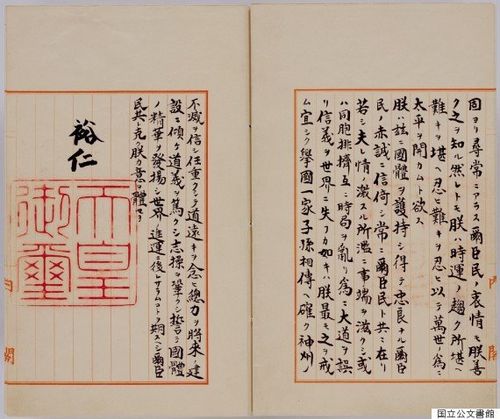 固ヨリ尋常ニアラス爾臣民ノ衷情モ朕善
ク之ヲ知ル然レトモ朕ハ時運ノ趨ク所堪ヘ
難キヲ堪ヘ忍ヒ難キヲ忍ヒ以テ萬世ノ爲ニ
太平ヲ開カムト欲ス
朕ハ茲ニ國體ヲ護持シ得テ忠良ナル爾臣
民ノ赤誠ニ信倚シ常ニ爾臣民ト共ニ在リ
若シ夫レ情ノ激スル所濫ニ事端ヲ滋クシ或
ハ同胞排擠互ニ時局ヲ亂リ爲ニ大道ヲ誤
リ信義ヲ世界ニ失フカ如キハ朕最モ之ヲ戒
ム宜シク擧國一家子孫相傳ヘ確ク神州ノ
不滅ヲ信シ任重クシテ道遠キヲ念ヒ總力ヲ將來ノ建
設ニ傾ケ道義ヲ篤クシ志操ヲ鞏クシ誓テ國體
ノ精華ヲ發揚シ世界ノ進運ニ後レサラムコトヲ期スヘシ爾臣
民其レ克ク朕カ意ヲ體セヨ
裕仁
天皇
御璽
閣
国立公文書館